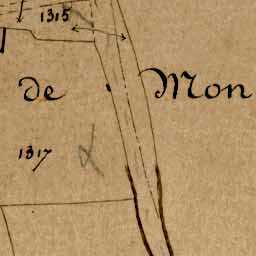 1315
de Mon
1317